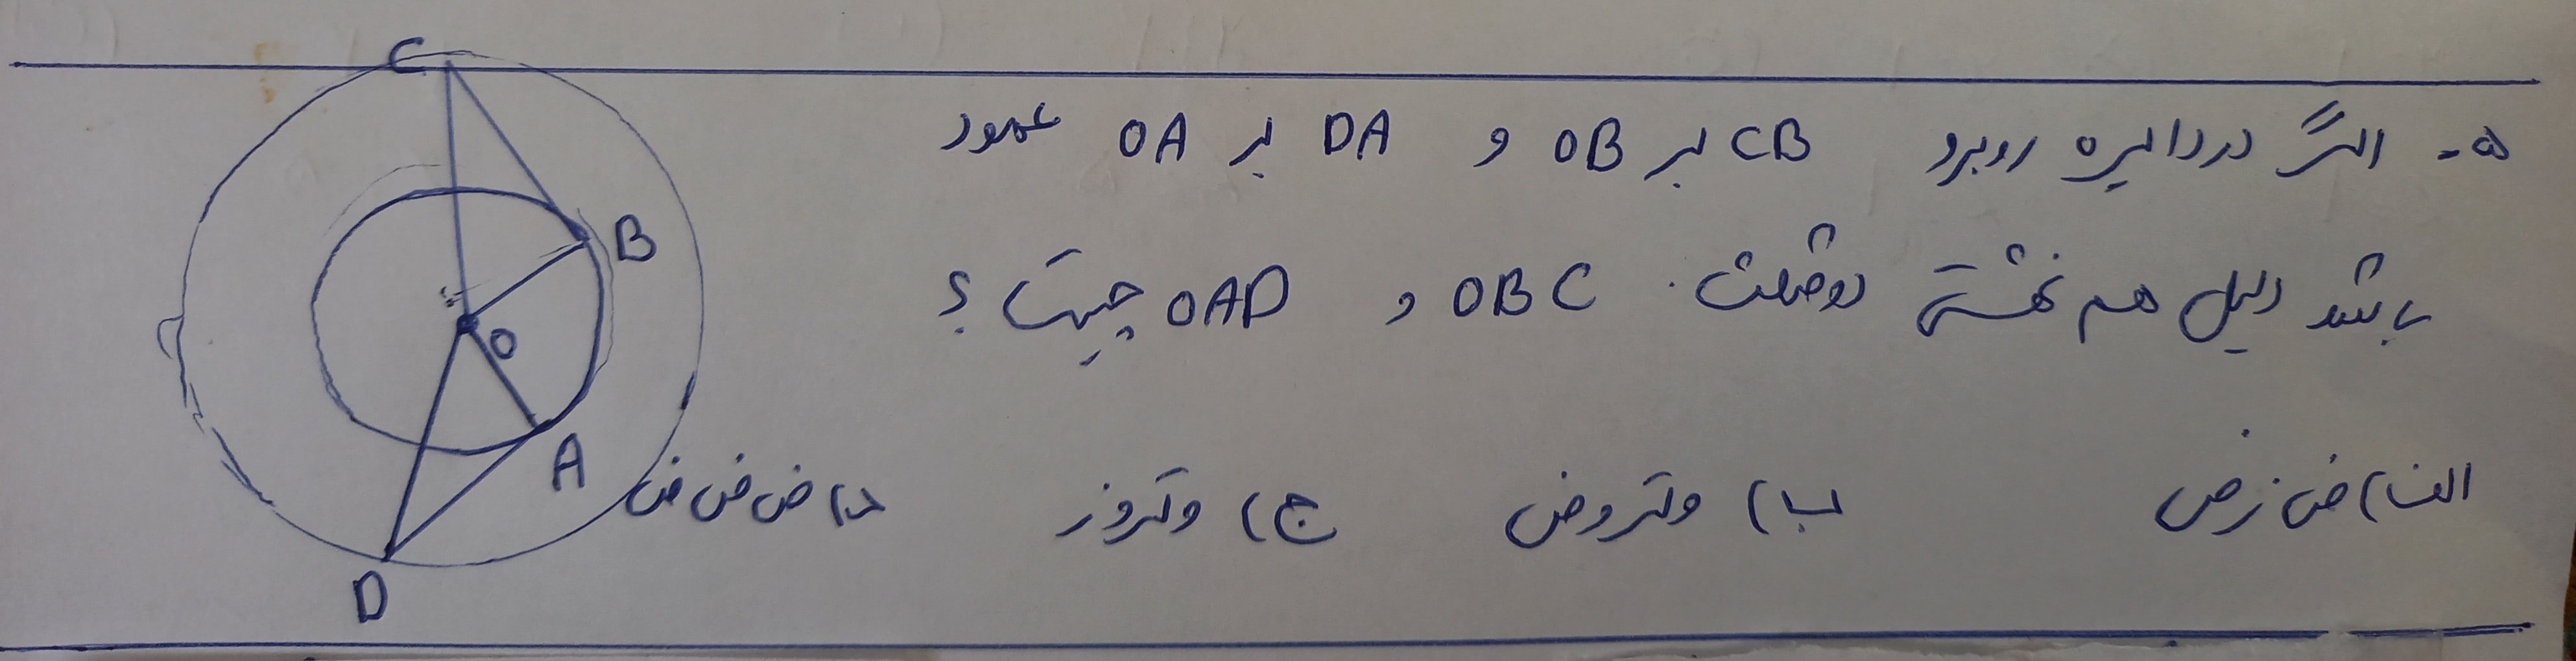 ۵- اگر در دایره روبرو CB بر OB و DA بر OA عمود
باشد دلیل هم نهشتی دو مثلث OBC و OAD چیست؟
الف) ض ز ض ب) وتر و ض ج) وتر و ز د) ض ض ض
C
B
O
A
D